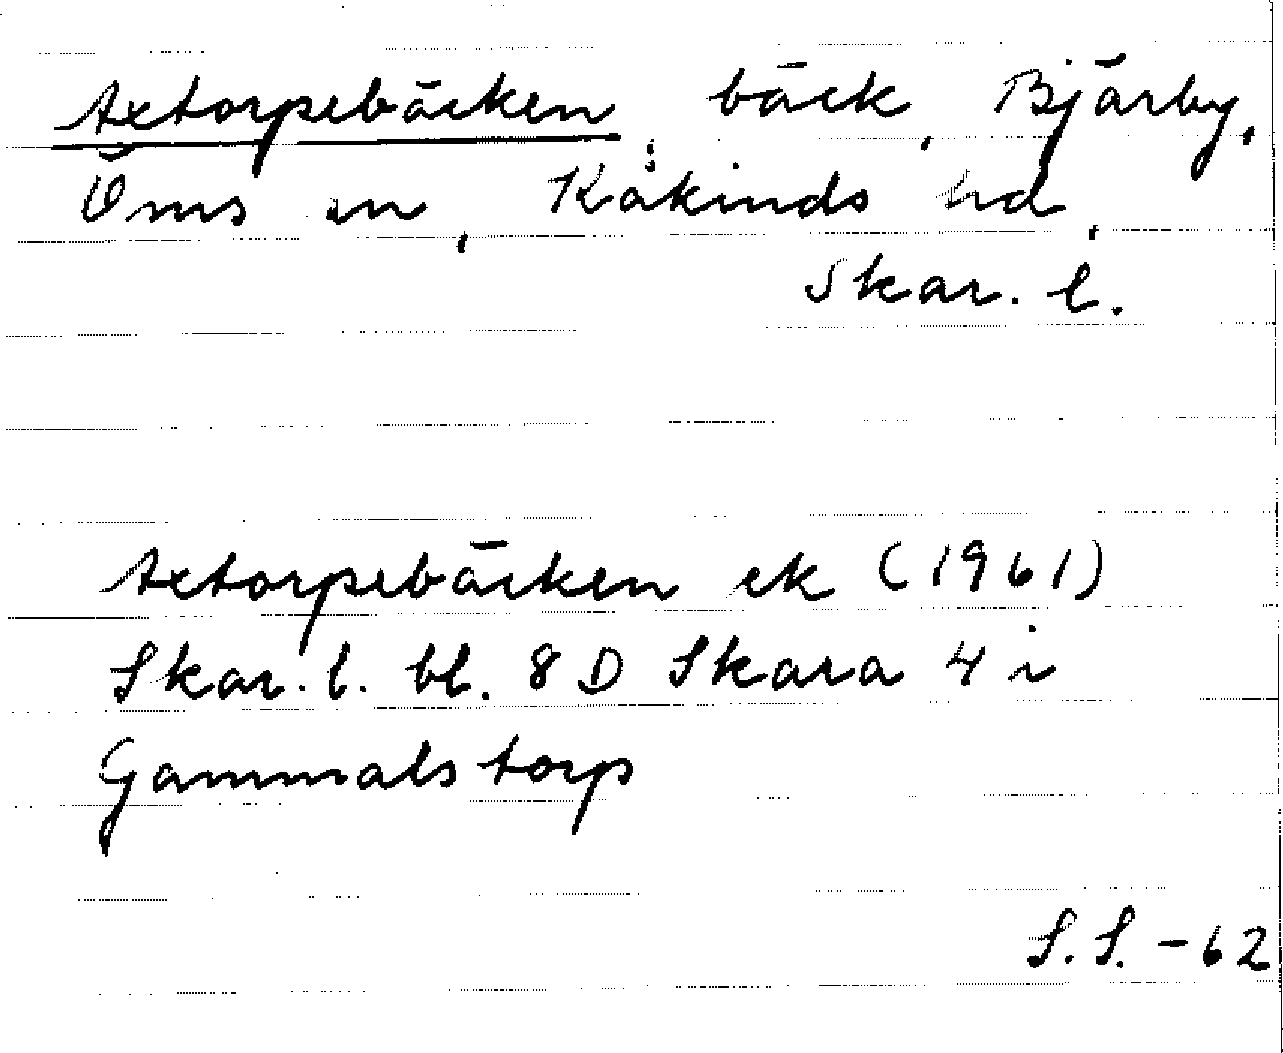 Axtorpebäcken, bäck, Bjärby,
Öms sn, Kåkinds hd,
Skar. l.
Axtorpebäcken ek (1961)
Skar. l. bl. 8 D Skara 4 i
Gammalstorp
S.S. -62